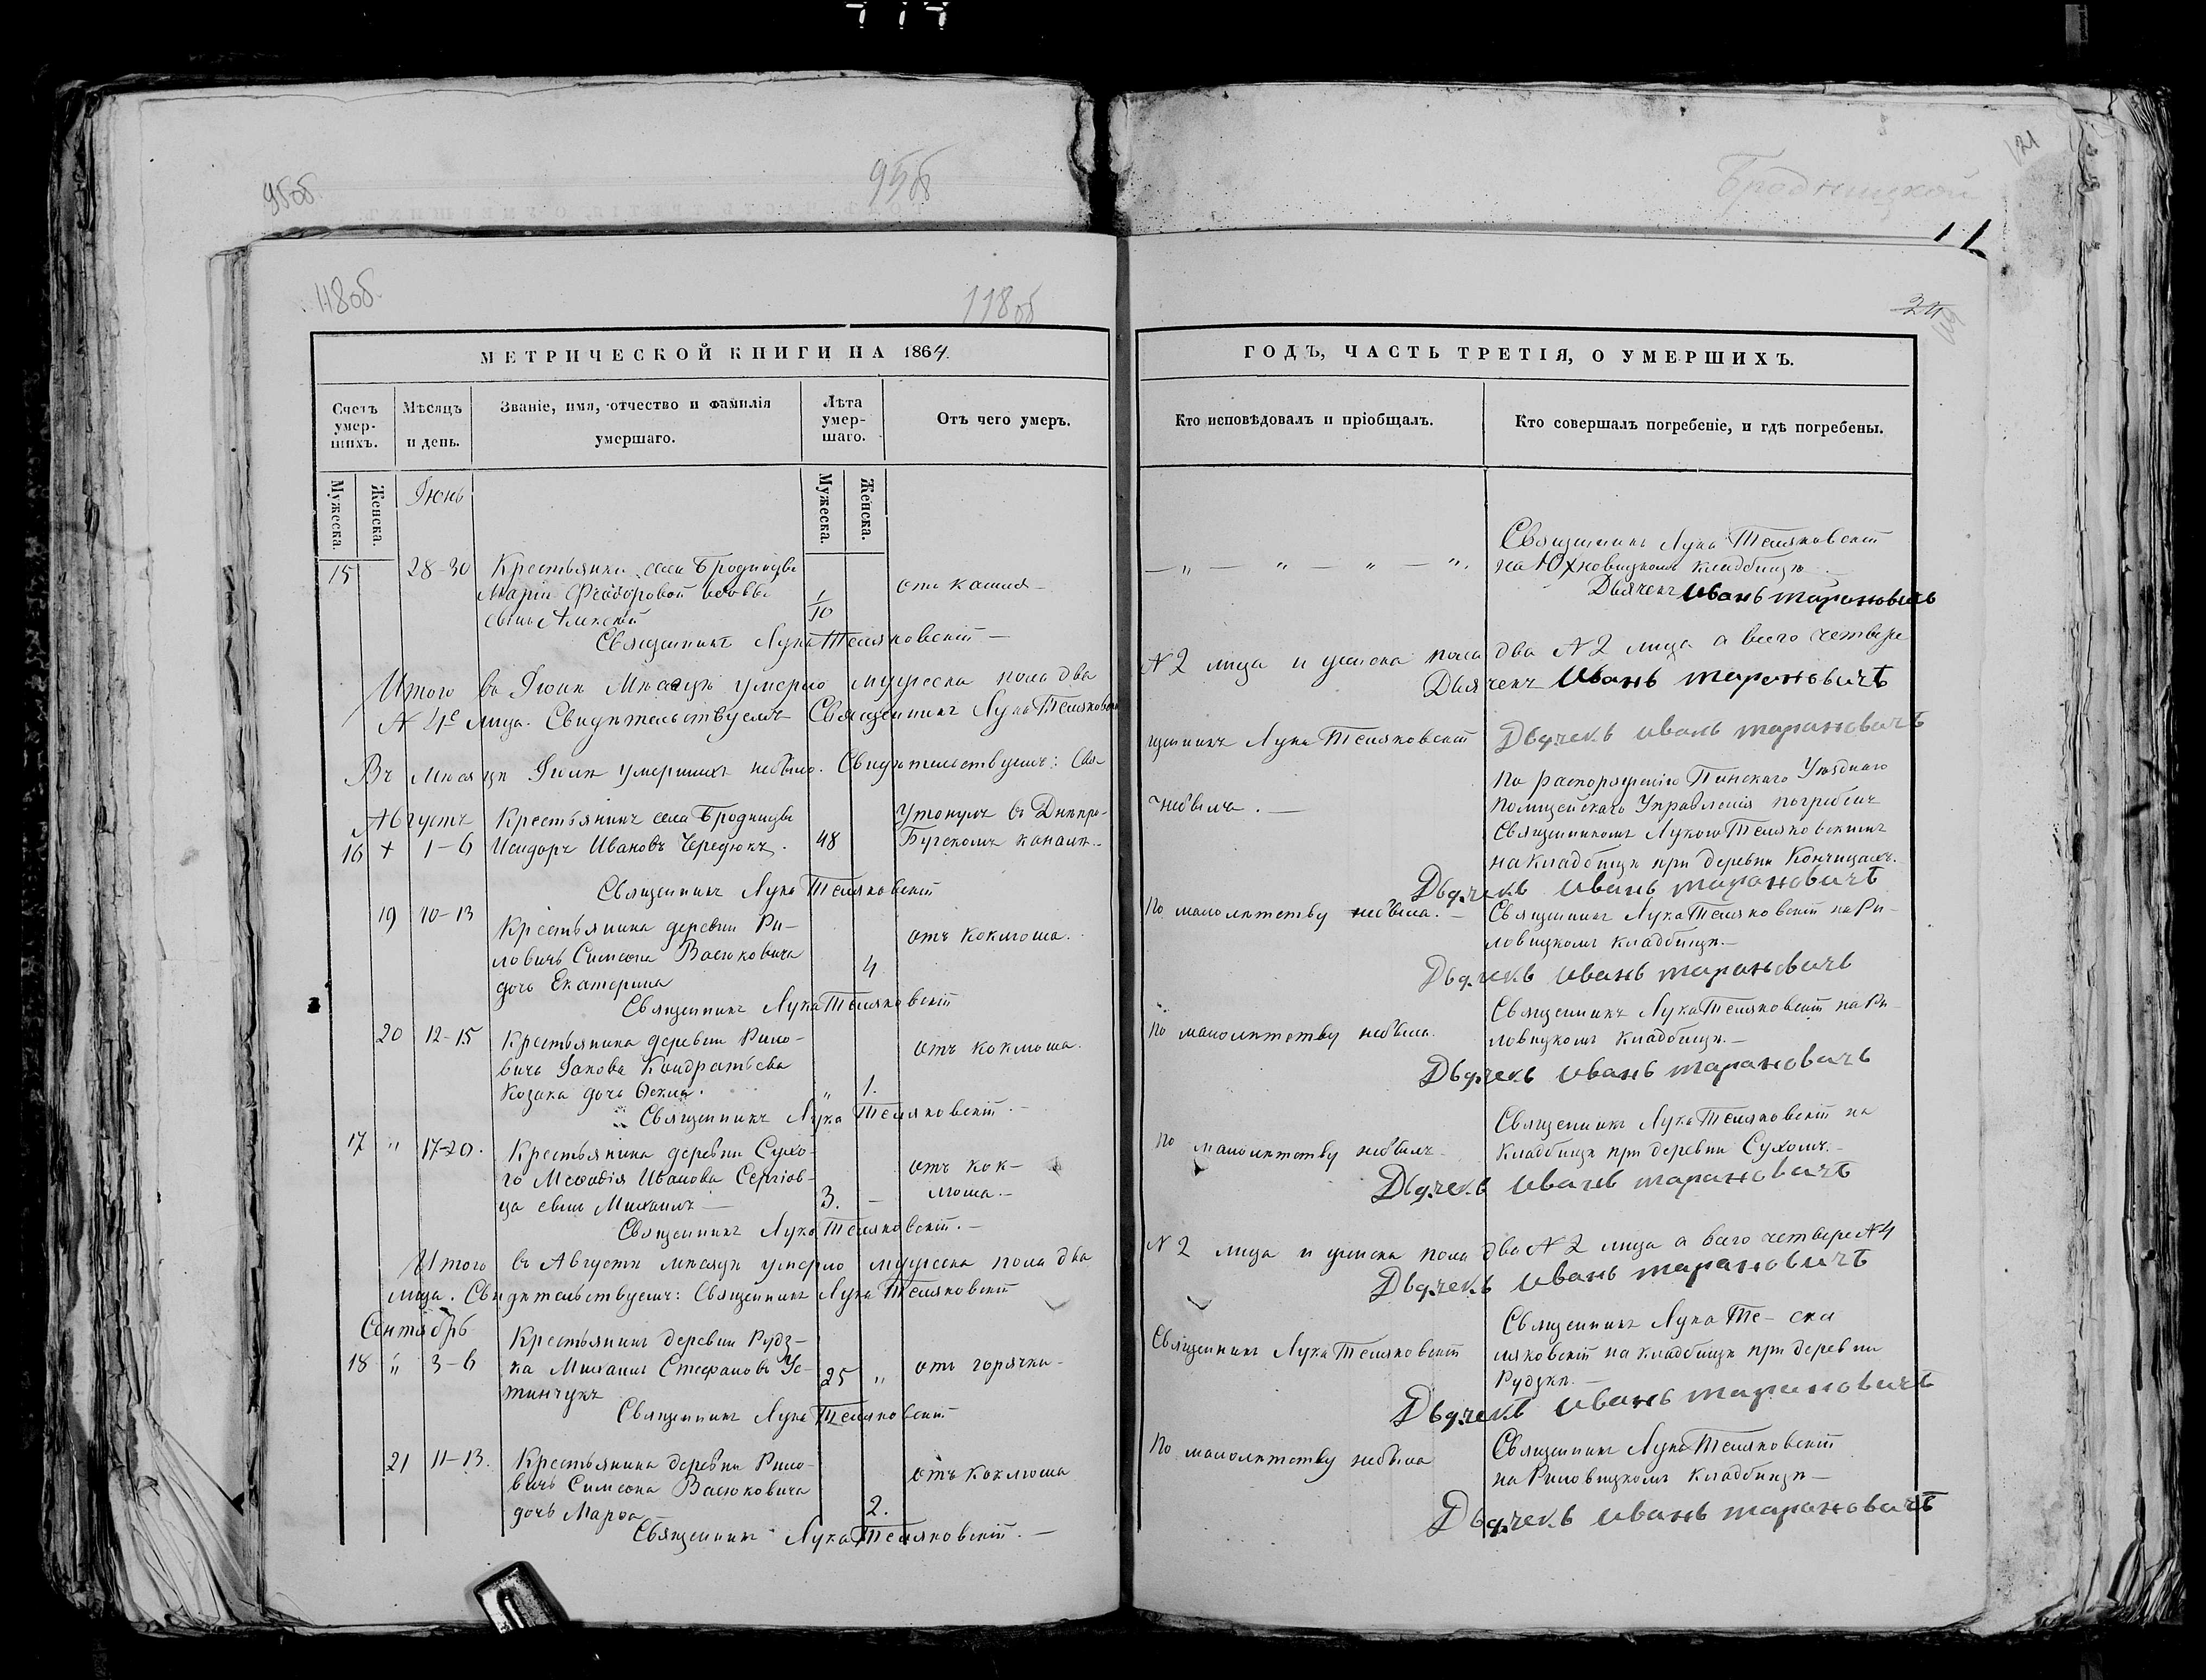 95об.
95об
Бродницкой
121
118об.
118об
24
119
МЕТРИЧЕСКОЙ КНИГИ НА 1864.
Счетъ умер-шихъ.
Мѣсяцъ и день.
Званіе, имя, отчество и фамилія умершаго.
Лѣта умер-шаго.
Отъ чего умеръ.
Мужеска.
Женска.
Мужеска.
Женска.
Іюнь
15 28-30 Крестьянки села Бродницы
Маріи Феодоровой
сынъ
1/10
отъ кашля
Священникъ Лука Теляковскій
Итого въ Іюнѣ Мѣсяцѣ умерло мужеска пола два
Лица. Свидѣтельствуемъ Священникъ Лука Теляковскій
Въ Мѣсяцѣ Іюлѣ умершихъ небыло. Свидѣтельствуемъ: Свя-
Августъ Крестьянинъ села Бродницы
16 + 1-6 Исидоръ Ивановъ Чередюкъ. 48
Утонулъ въ Днѣпро-
Бугскомъ каналѣ.
Священникъ Лука Теляковскій
19 10-13 Крестьянина деревни Ри-
ловичъ Симеона Васюковича
дочь Екатерина
4
отъ коклюша.
Священникъ Лука Теляковскій
20 12-15 Крестьянина деревни Рило-
вичъ Іакова Кондратьева
Козака дочь Ѳекла.
„ 1.
отъ коклюша.
Священникъ Лука Теляковскій.
17 „ 17-20. Крестьянина деревни Сухо-
го Меѳодія Иванова Сергіов-
ца сынъ Михаилъ
3. —
отъ кок-
люша.—
Священникъ Лука Теляковскій.—
Итого въ Августѣ мѣсяцѣ умерло мужеска пола два
лица. Свидѣтельствуемъ: Священникъ Лука Теляковскій
Сентябрь
Крестьянинъ деревни Рудз-
18 „ 3-6 ка Михаилъ Стефановъ Ус-
тинчукъ
25 „
отъ горячки
Священникъ Лука Теляковскій
21 11-13. Крестьянина деревни Рило-
вичъ Симеона Васюковича
дочь Марѳа
2.
отъ коклюша
Священникъ Лука Теляковскій.—
ГОДЪ, ЧАСТЬ ТРЕТІЯ, О УМЕРШИХЪ.
Кто исповѣдовалъ и пріобщалъ.
Кто совершалъ погребеніе, и гдѣ погребены.
— „ — „ — „ — „.
Священникъ Лука Теляковскій
на Юхновицкомъ кладбищѣ
Дьячекъ Иванъ Тарановичъ
№ 2 лица и женска пола два № 2 лица а всего четвере
Дьячекъ Иванъ Тарановичъ
щенникъ Лука Теляковскій Дьячекъ Иванъ Тарановичъ
небылъ.—
По распоряженію Пинскаго Уѣзднаго
Полицейскаго Управленія погребенъ
Священникомъ Лукою Теляковскимъ
на кладбищѣ при деревни Кончицахъ.
Дьячекъ Иванъ Тарановичъ
По малолѣтству небыла.—
Священникъ Лука Теляковскій на Ри-
ловицкомъ кладбищѣ.—
Дьячекъ Иванъ Тарановичъ
По малолѣтству небыла.
Священникъ Лука Теляковскій на Ри-
ловицкомъ кладбищѣ.—
Дьячекъ Иванъ Тарановичъ
По малолѣтству небылъ
Священникъ Лука Теляковскій на
кладбищѣ при деревни Сухомъ.—
Дьячекъ Иванъ Тарановичъ
№ 2 лица и женска пола два № 2 лица а всего четвере № 4
Дьячекъ Иванъ Тарановичъ
Священникъ Лука Теляковскій
Священникъ Лука Те-
ляковскій на кладбищѣ при деревни
Рудзкѣ.
Дьячекъ Иванъ Тарановичъ
По малолѣтству небыла
Священникъ Лука Теляковскій
на Риловицкомъ кладбищѣ—
Дьячекъ Иванъ Тарановичъ